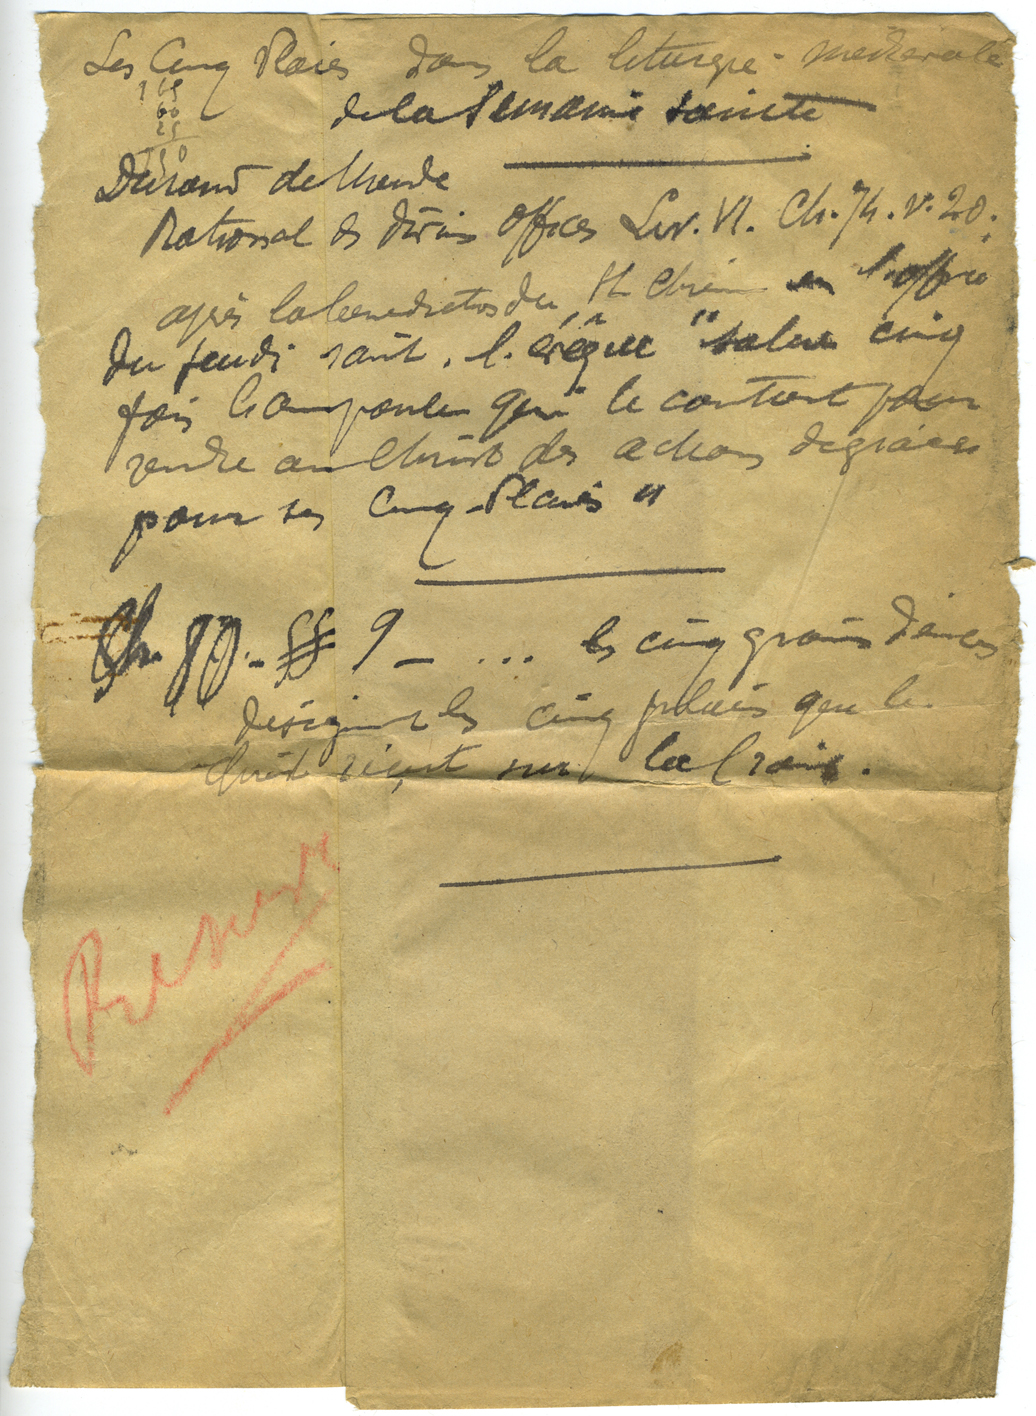 Les Cinq Plaies dans la liturgie médiévale
de la Semaine sainte
60
25
Durand de Mende
Rational des divins offices Liv. VI. Ch. 74. v. 20.
après la benediction du St Chrême en l'office
du jeudi saint, l'évêque "salue cinq
fois l'ampoule qui le contient pour
rendre au Christ des actions de grâces
pour ses Cinq-Plaies"
Ch. 80. - §§ 9 - ... les cinq grains d'encens
désignent les cinq plaies que le
Christ reçut sur la Croix.